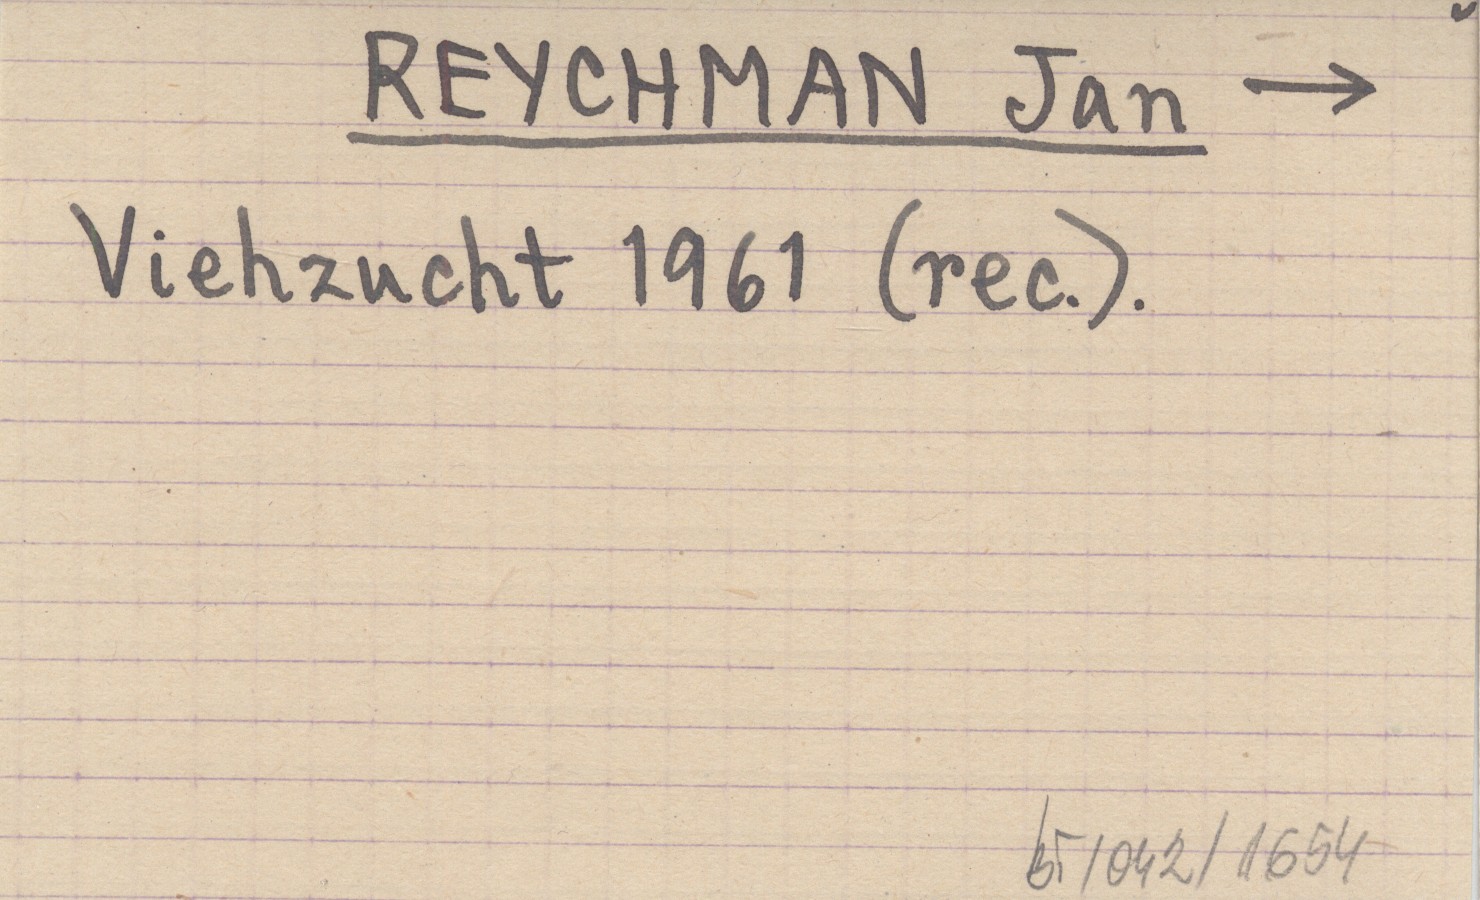 REYCHMAN Jan →
Viehzucht 1961 (rec.).
/042/1654